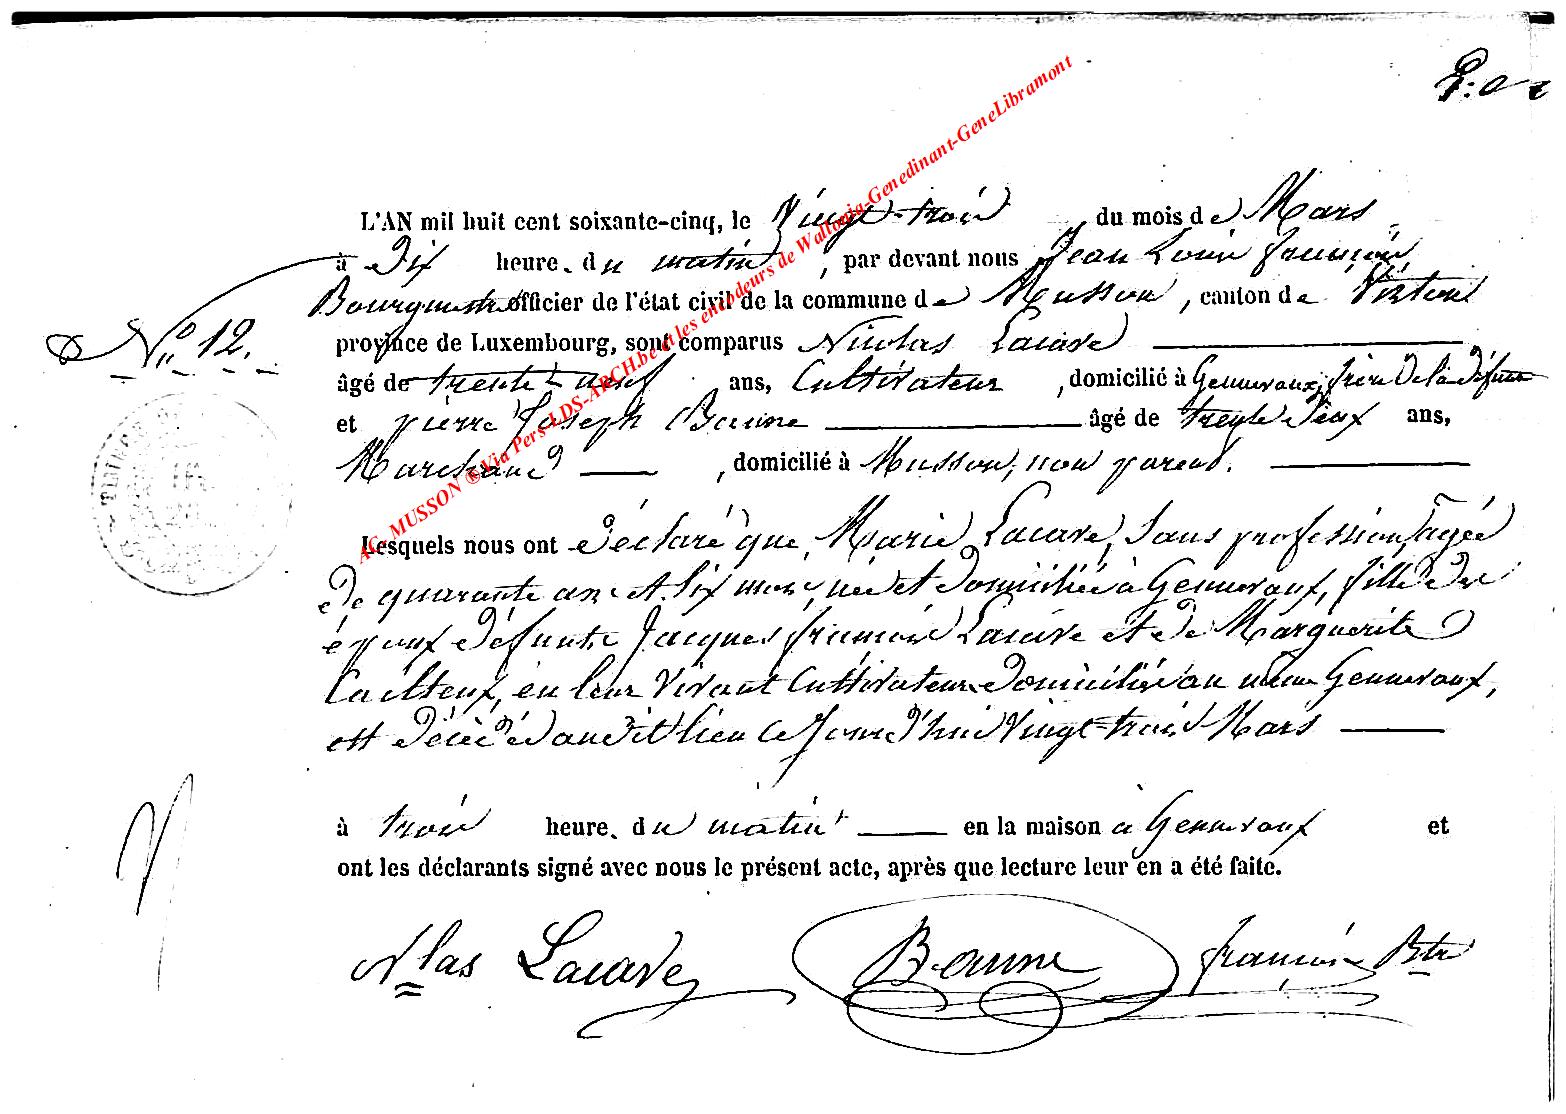 N° 12.
L'AN mil huit cent soixante-cinq, le Vingt-trois du mois de Mars
à Dix heure. du matin, par devant nous Jean Louis françois
Bourgmestre officier de l'état civil de la commune de Musson, canton de Virton
province de Luxembourg, sont comparus Nicolas Lacave
âgé de trente-neuf ans, Cultivateur, domicilié à Gennevaux, frère de la défunte
et pierre Joseph Baunne âgé de trente deux ans,
Marchand, domicilié à Musson, non parent.
Lesquels nous ont déclaré que, Marie Lacave, Sans profession, agée
de quarante ans et six mois, née et domiciliée à Gennevaux, fille des
époux défunts Jacques françois Lacave et de Marguerite
Cailteux, en leur vivant Cultivateurs domiciliés au même Gennevaux,
est décédé audit lieu ce Jourd'hui Vingt-trois Mars
à trois heure. du matin en la maison à Gennevaux et
ont les déclarants signé avec nous le présent acte, après que lecture leur en a été faite.
Nlas Lacave Baunne françois Btre
AC- MUSSON ® Via Pers-LDS-ARCH.be et les encodeurs de Wallonia-Genedinant-GeneLibramont